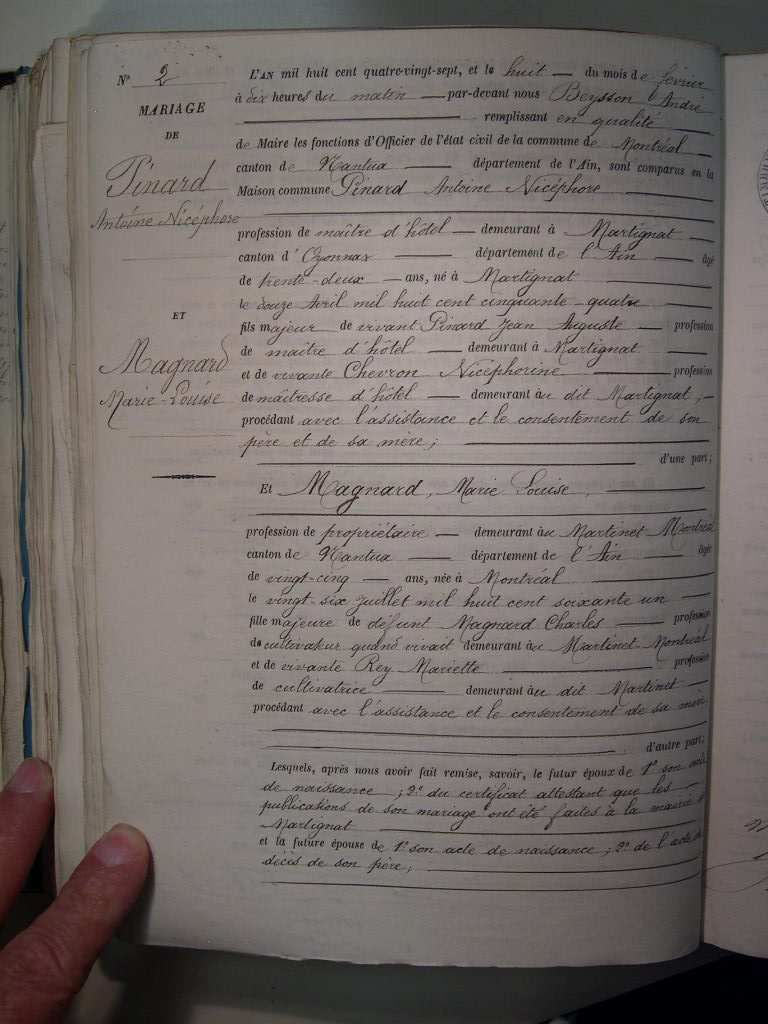 N° 2
MARIAGE
DE
Pinard
Antoine Nicéphore
ET
Magnard
Marie-Louise
L'AN mil huit cent quatre-vingt-sept, et le huit du mois de février
à dix heures du matin par-devant nous Beysson André
remplissant en qualité
de Maire les fonctions d'Officier de l'état civil de la commune de Montréal
canton de Nantua département de l'Ain, sont comparus en la
Maison commune Pinard Antoine Nicéphore
profession de maître d'hôtel demeurant à Martignat
canton d'Oyonnax département de l'Ain âgé
de trente-deux ans, né à Martignat
le douze Avril mil huit cent cinquante-quatre
fils majeur de vivant Pinard Jean Auguste profession
de maître d'hôtel demeurant à Martignat
et de vivante Chevron Nicéphorine profession
de maîtresse d'hôtel demeurant au dit Martignat,
procédant avec l'assistance et le consentement de son
père et de sa mère;
d'une part;
Et Magnard, Marie Louise,
profession de propriétaire demeurant au Martinet Montréal
canton de Nantua département de l'Ain âgée
de vingt-cinq ans, née à Montréal
le vingt-six juillet mil huit cent soixante un
fille majeure de défunt Magnard Charles profession
de cultivateur quand vivait demeurant au Martinet-Montréal
et de vivante Rey Mariette profession
de cultivatrice demeurant au dit Martinet
procédant avec l'assistance et le consentement de sa mère
d'autre part;
Lesquels, après nous avoir fait remise, savoir, le futur époux de 1° son acte
de naissance; 2° du certificat attestant que les
publications de son mariage ont été faites à la mairie de
Martignat
et la future épouse de 1° son acte de naissance; 2° de l'acte de
décès de son père;